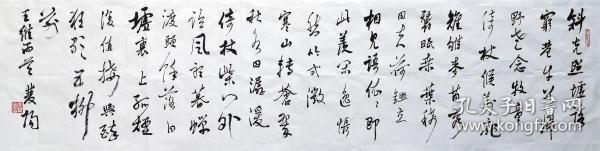 斜光照墟落
窮巷牛羊歸
野老念牧童
倚杖候荊扉
雉雊麥苗秀
蠶眠桑葉稀
田夫荷鋤立
相見語依依即
此羨閑逸悵
然吟式微
寒山轉蒼翠
秋水日潺湲
倚杖柴門外
臨風聽暮蟬
渡頭餘落日
墟裏上孤煙
復值接輿醉
狂歌五柳
前
王維兩首
孔夫子旧书网